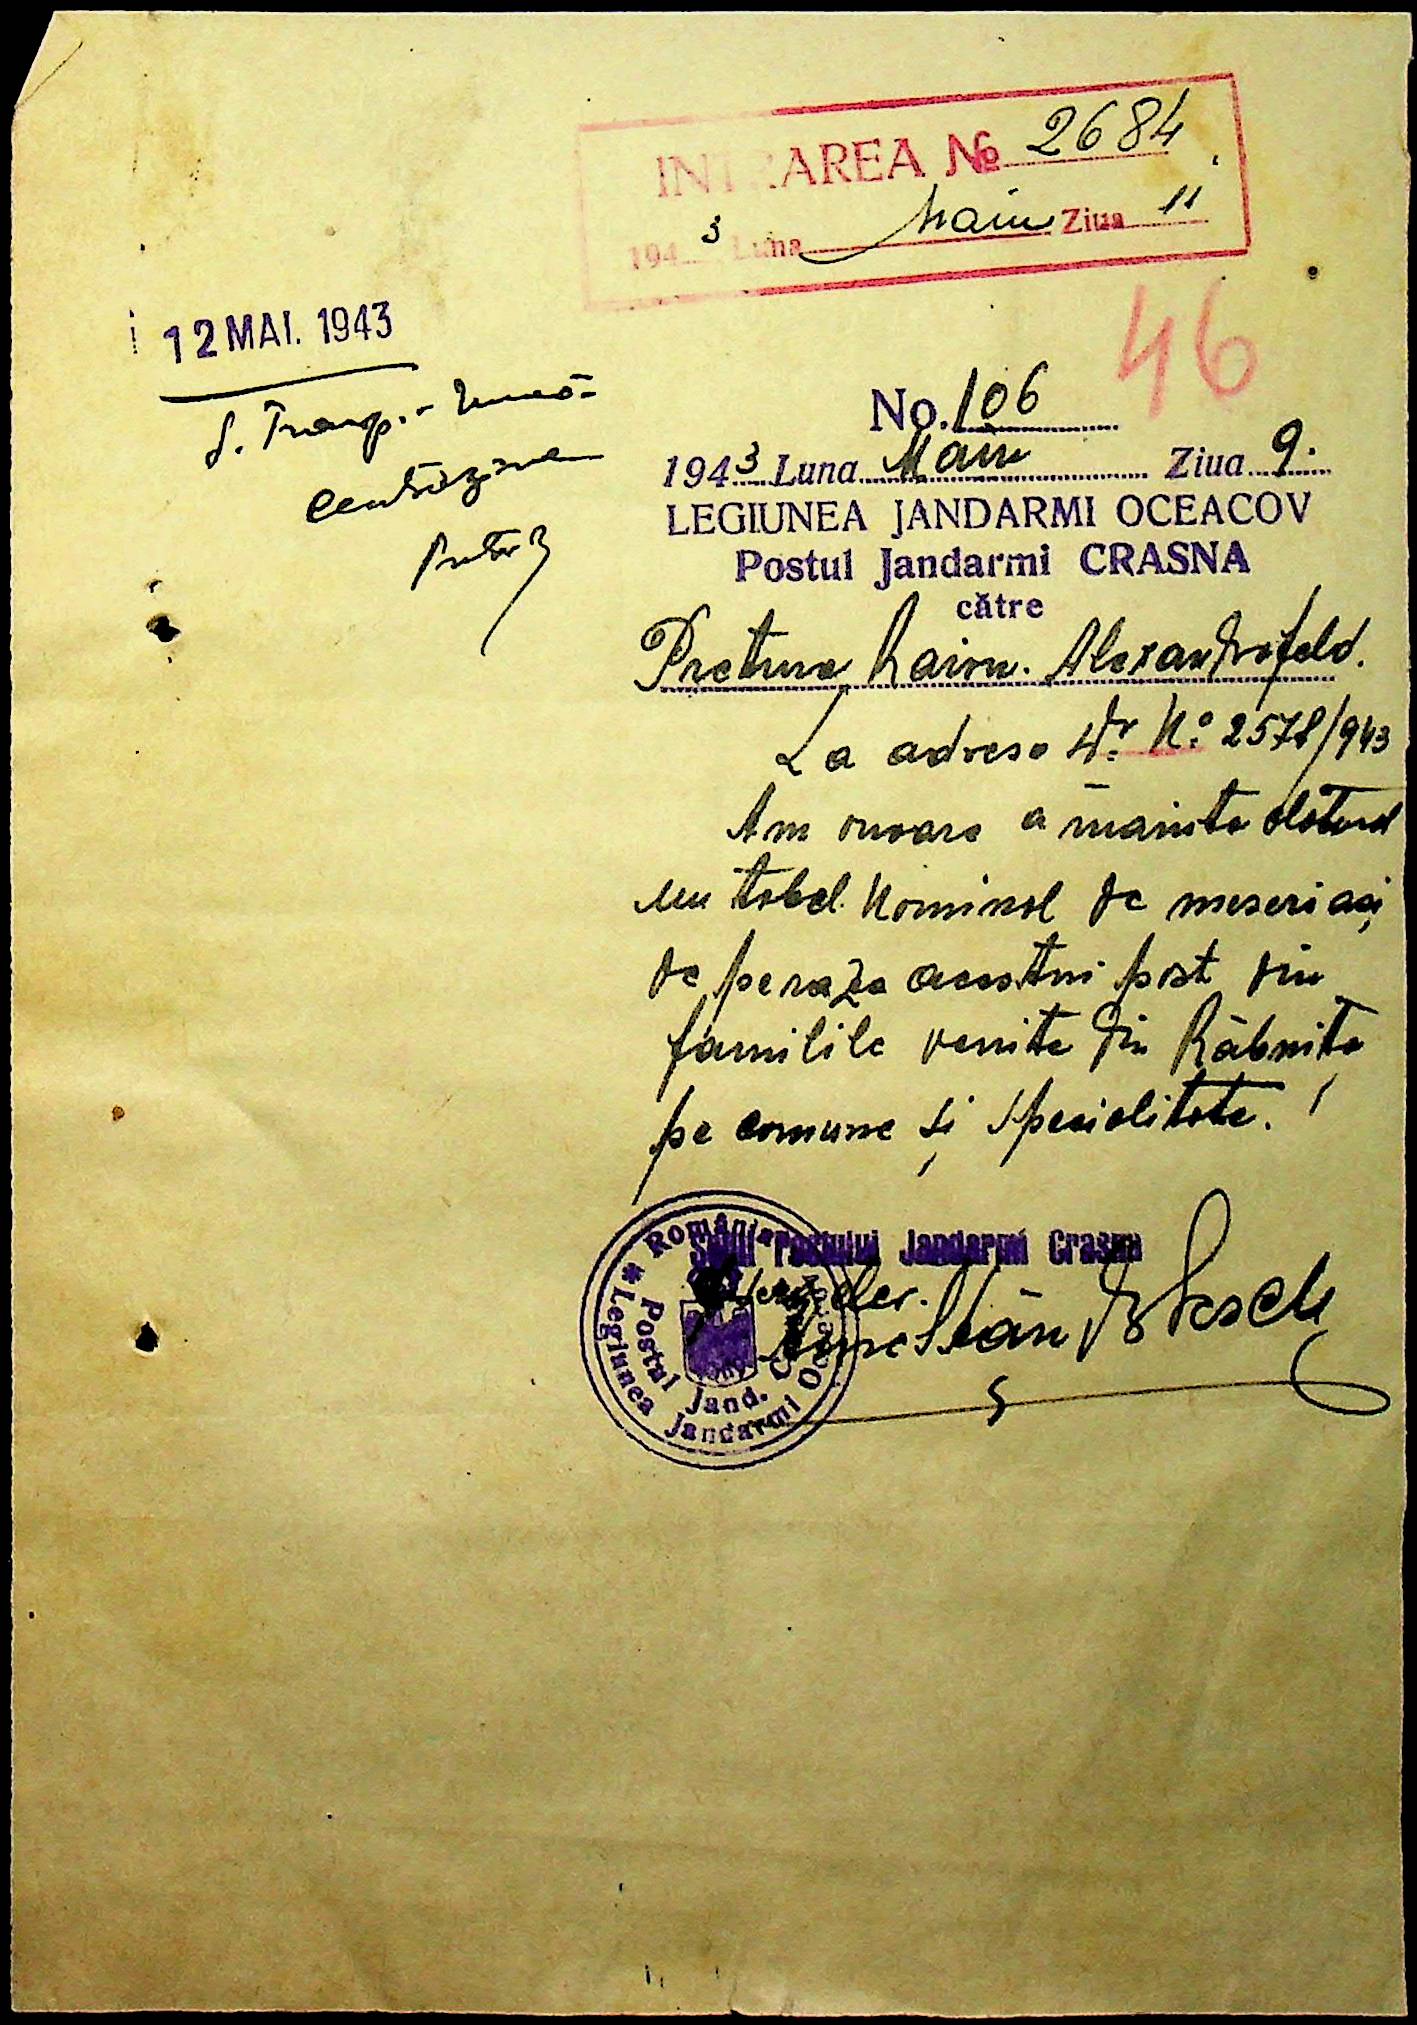 INTRAREA No 2684
1943 Luna Maiu Ziua 11
46
12 MAI. 1943
No. 106
1943 Luna Maiu Ziua 9.
LEGIUNEA JANDARMI OCEACOV
Postul Jandarmi CRASNA
către
Pretura Raion. Alexandrofeld.
La adresa Dr. No. 2578/943
Am onoare a înainta alăturat
un tabel Nominal de meseriași
de pe raza acestui post din
familile venite din Râbnița
pe comune și specialitate.
Șeful Postului Jandarmi Crasna
România
Legiunea Jandarmi Oceacov
Postul Jand.